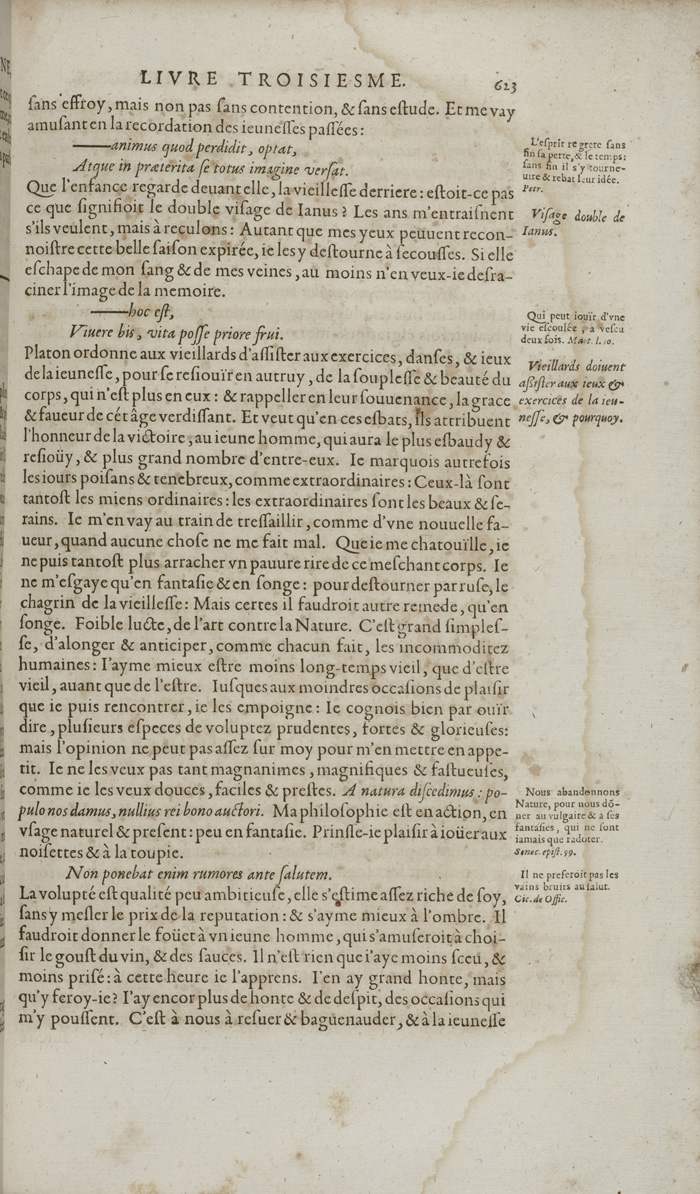 LIVRE TROISIESME. 623
ſans effroy, mais non pas ſans contention, & ſans eſtude. Et me vay
amuſant en la recordation des ieuneſſes paſſées:
——animus quod perdidit, optat,
Atque in præterita ſe totus imagine verſat.
Que l'enfance regarde deuant elle, la vieilleſſe derriere: eſtoit-ce pas
ce que ſignifioit le double viſage de Ianus? Les ans m'entraiſnent
s'ils veulent, mais à reculons: Autant que mes yeux peuuent recon-
noiſtre cette belle ſaiſon expirée, ie les y deſtourne à ſecouſſes. Si elle
eſchape de mon ſang & de mes veines, au moins n'en veux-ie deſra-
ciner l'image de la memoire.
——hoc eſt,
Viuere bis, vita poſſe priore frui.
Platon ordonne aux vieillards d'aſſiſter aux exercices, danſes, & ieux
de la ieuneſſe, pour ſe reſiouïr en autruy, de la ſoupleſſe & beauté du
corps, qui n'eſt plus en eux: & rappeller en leur ſouuenance, la grace
& faueur de cét âge verdiſſant. Et veut qu'en ces eſbats, ils attribuent
l'honneur de la victoire, au ieune homme, qui aura le plus eſbaudy &
reſioüy, & plus grand nombre d'entre-eux. Ie marquois autrefois
les iours poiſans & tenebreux, comme extraordinaires: Ceux-là ſont
tantoſt les miens ordinaires: les extraordinaires ſont les beaux & ſe-
rains. Ie m'en vay au train de treſſaillir, comme d'vne nouuelle fa-
ueur, quand aucune choſe ne me fait mal. Que ie me chatouïlle, ie
ne puis tantoſt plus arracher vn pauure rire de ce meſchant corps. Ie
ne m'eſgaye qu'en fantaſie & en ſonge: pour deſtourner par ruſe, le
chagrin de la vieilleſſe: Mais certes il faudroit autre remede, qu'en
ſonge. Foible lucte, de l'art contre la Nature. C'eſt grand ſimpleſ-
ſe, d'alonger & anticiper, comme chacun fait, les incommoditez
humaines: I'ayme mieux eſtre moins long-temps vieil, que d'eſtre
vieil, auant que de l'eſtre. Iuſques aux moindres occaſions de plaiſir
que ie puis rencontrer, ie les empoigne: Ie cognois bien par ouïr
dire, pluſieurs eſpeces de voluptez prudentes, fortes & glorieuſes:
mais l'opinion ne peut pas aſſez ſur moy pour m'en mettre en appe-
tit. Ie ne les veux pas tant magnanimes, magnifiques & faſtueuſes,
comme ie les veux douces, faciles & preſtes. A natura diſcedimus: po-
pulo nos damus, nullius rei bono auctori. Ma philoſophie eſt en action, en
vſage naturel & preſent: peu en fantaſie. Prinſſe-ie plaiſir à ioüer aux
noiſettes & à la toupie.
Non ponebat enim rumores ante ſalutem.
La volupté eſt qualité peu ambitieuſe, elle s'eſtime aſſez riche de ſoy,
ſans y meſler le prix de la reputation: & s'ayme mieux à l'ombre. Il
faudroit donner le foüet à vn ieune homme, qui s'amuſeroit à choi-
ſir le gouſt du vin, & des ſauces. Il n'eſt rien que i'aye moins ſceu, &
moins priſé: à cette heure ie l'apprens. I'en ay grand honte, mais
qu'y feroy-ie? I'ay encor plus de honte & de deſpit, des occaſions qui
m'y pouſſent. C'eſt à nous à reſuer & baguenauder, & à la ieuneſſe
L'eſprit regrete ſans
fin ſa perte, & le temps:
ſans fin il s'y tourne-
uire & rebat leur idée.
Petr.
Viſage double de
Ianus.
Qui peut iouïr d'vne
vie eſcoulée, a veſcu
deux fois. Mart. l. 10.
Vieillards doiuent
aſſiſter aux ieux &
exercices de la ieu-
neſſe, & pourquoy.
Nous abandonnons
Nature, pour nous dõ-
ner au vulgaire & a ſes
fantaſies, qui ne ſont
iamais que radoter.
Senec. epiſt. 99.
Il ne preferoit pas les
vains bruits au ſalut.
Cic. de Offic.